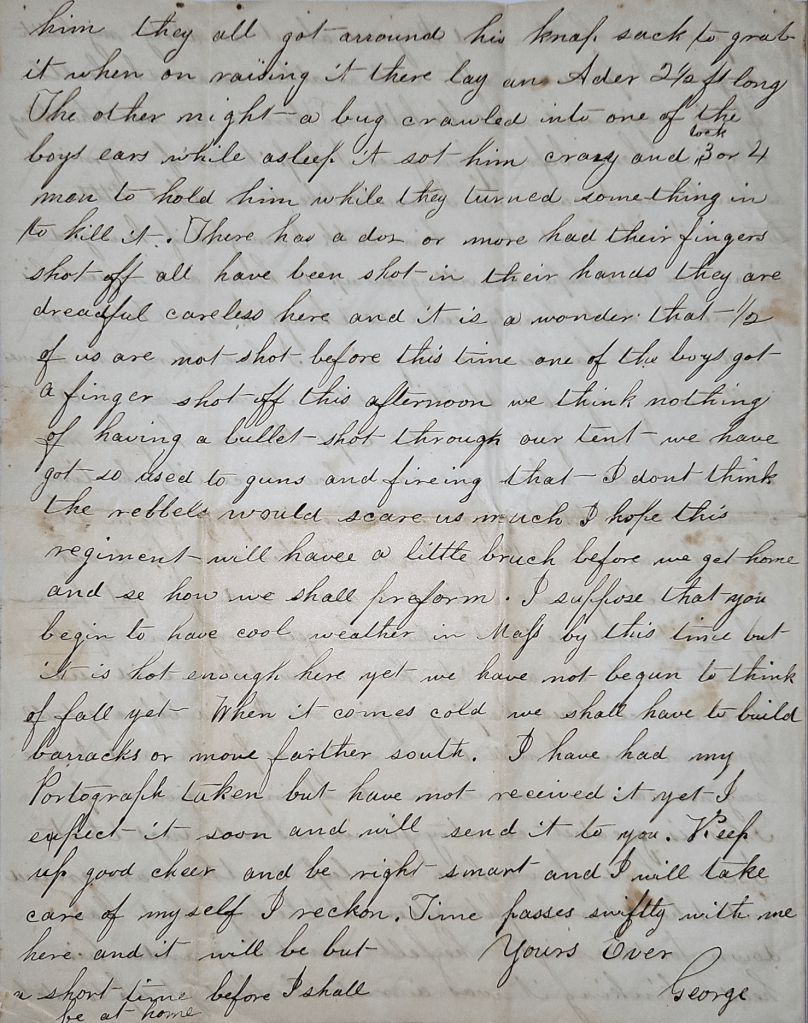 him they all got arround his knap sack to grab
it when on raising it there lay an Ader 2 1/2 ft long
The other night a bug crawled into one of the
boys ears while asleep it sot him crazy and took 3 or 4
men to hold him while they turned something in
to kill it. There has a doz or more had their fingers
shot off all have been shot in their hands they are
dreadful careless here and it is a wonder that 1/2
of us are not shot before this time one of the boys got
a finger shot off this afternoon we think nothing
of having a bullet shot through our tent we have
got so used to guns and fireing that I dont think
the rebbels would scare us much I hope this
regiment will havee a little bruch before we get home
and se how we shall preform. I suppose that you
begin to have cool weather in Mass by this time but
it is hot enough here yet we have not begun to think
of fall yet When it comes cold we shall have to build
barracks or move farther south. I have had my
Portograph taken but have not received it yet I
expect it soon and will send it to you. Keep
up good cheer and be right smart and I will take
care of myself I reckon. Time passes swiftly with me
here and it will be but Yours Ever
a short time before I shall George
be at home